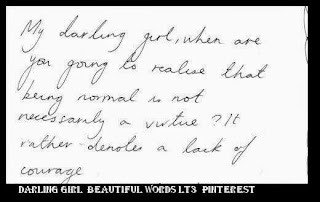 My darling girl, when are
you going to realise that
being normal is not
necessarily a virtue? It
rather denotes a lack of
courage
DARLING GIRL BEAUTIFUL WORDS LTS PINTEREST